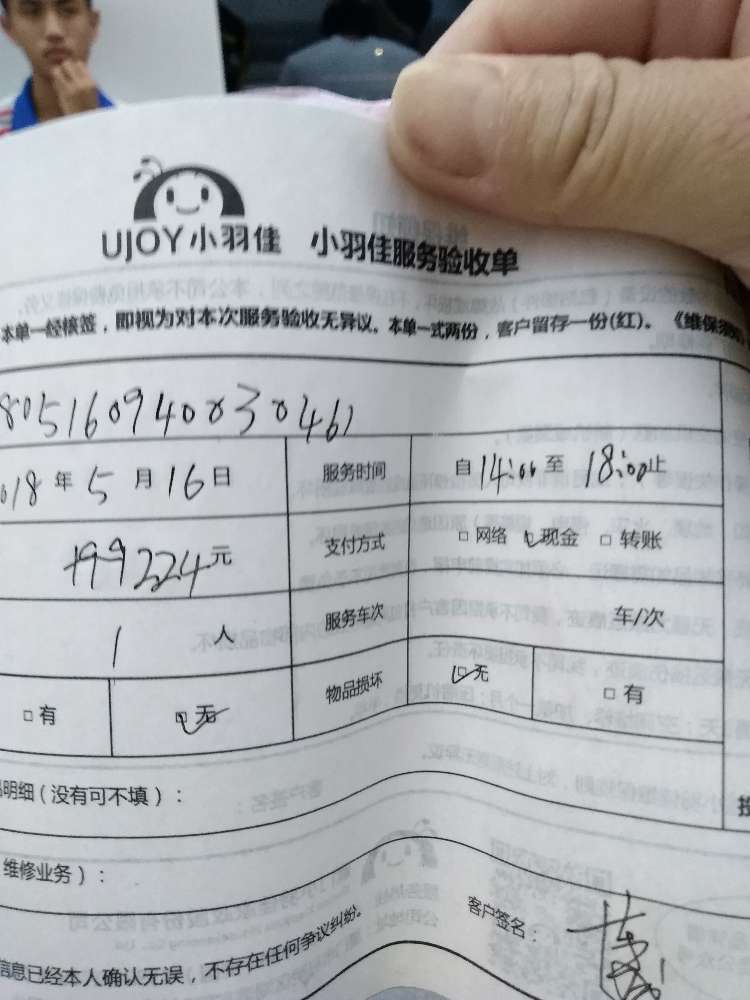 UJOY 小羽佳 小羽佳服务验收单
本单一经核签，即视为对本次服务验收无异议。本单一式两份，客户留存一份(红)。《维保须
805160940030461
018年5月16日 服务时间 自14:00至18:00止
元 支付方式 □网络 □现金 □转账
1人 服务车次 车/次
□有 □无 物品损坏 □无 □有
明细（没有可不填）：
维修业务）：
客户签名：
信息已经本人确认无误，不存在任何争议纠纷。